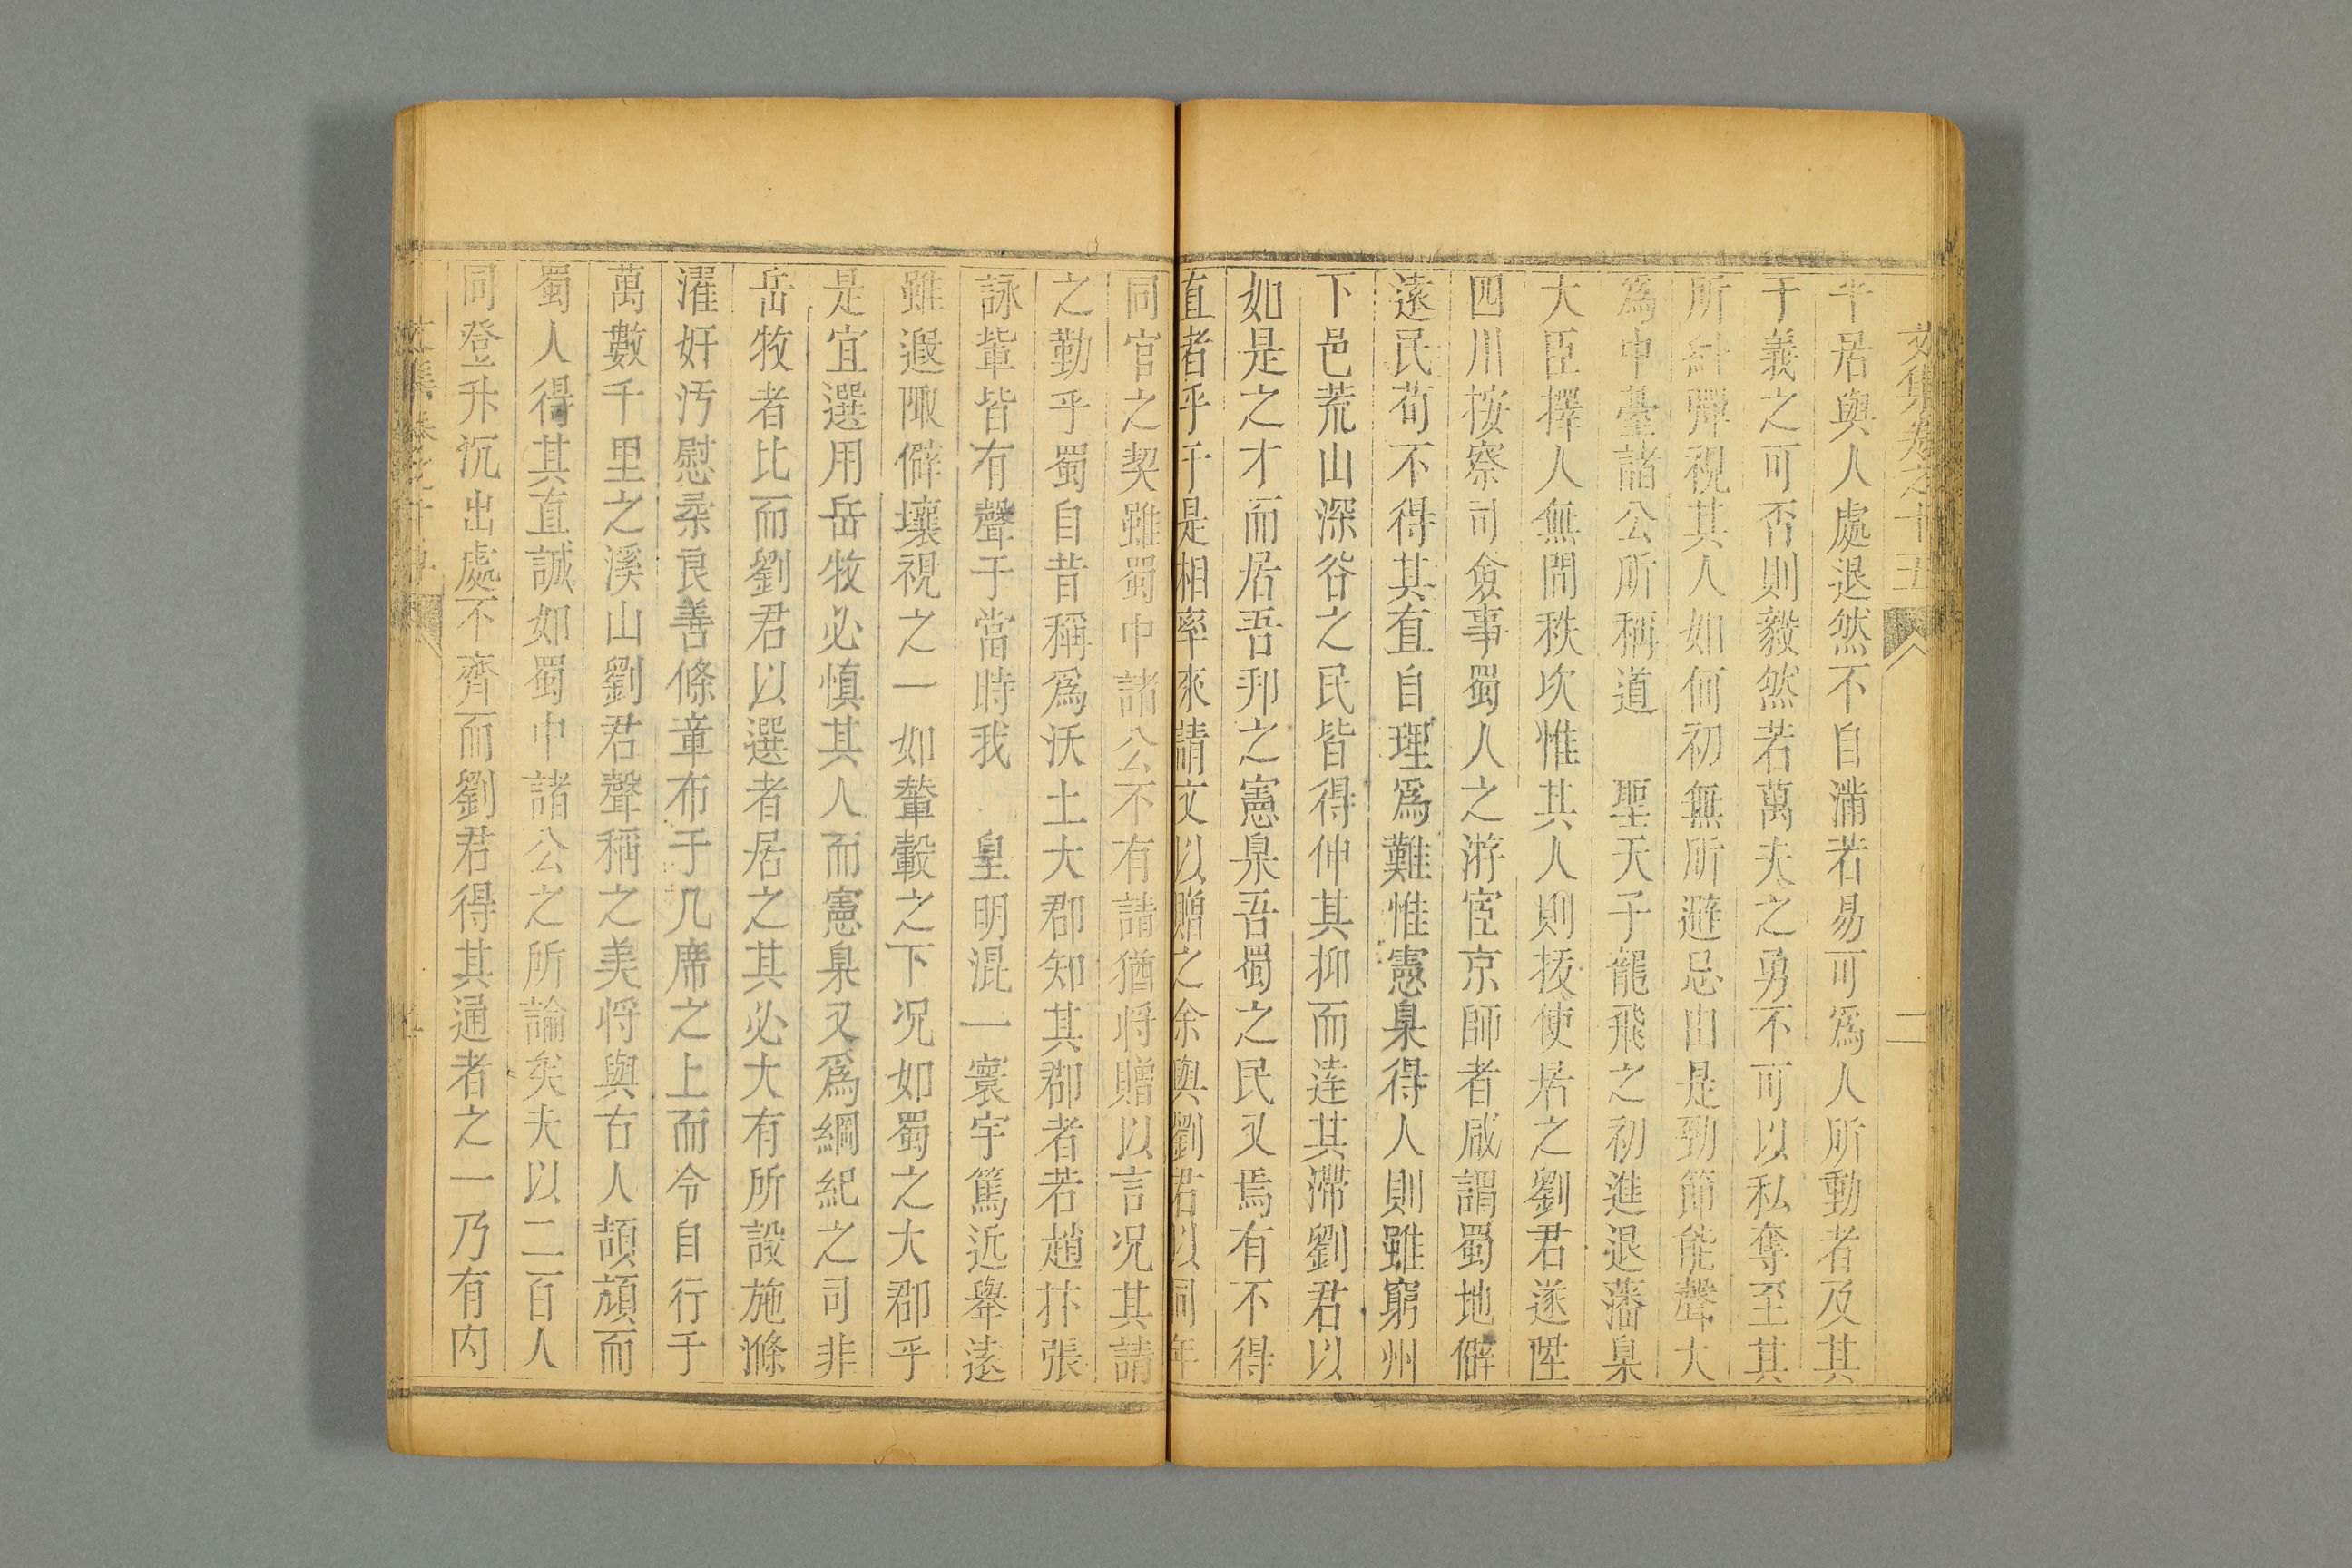 文集卷之十五 二
平居與人處退然不自滿若易可爲人所動者及其
于義之可否則毅然若萬夫之勇不可以私奪至其
所糾彈視其人如何初無所避忌由是勁節能聲大
爲中臺諸公所稱道 聖天子龍飛之初進退藩臬
大臣擇人無間秩次惟其人則拔使居之劉君遂陞
四川按察司僉事蜀人之游宦京師者咸謂蜀地僻
遠民苟不得其直自理爲難惟憲臬得人則雖窮州
下邑荒山深谷之民皆得伸其抑而達其滯劉君以
如是之才而居吾邦之憲臬吾蜀之民又焉有不得
直者乎于是相率來請文以贈之余與劉君以同年
同官之契雖蜀中諸公不有請猶將贈以言况其請
之勤乎蜀自昔稱爲沃土大郡知其郡者若趙抃張
詠輩皆有聲于當時我 皇明混一寰宇篤近舉遠
雖遐陬僻壤視之一如輦轂之下况如蜀之大郡乎
是宜選用岳牧必慎其人而憲臬又爲綱紀之司非
岳牧者比而劉君以選者居之其必大有所設施滌
濯奸汚慰柔良善條章布于几席之上而令自行于
萬數千里之溪山劉君聲稱之美將與古人頡頏而
蜀人得其直誠如蜀中諸公之所論矣夫以二百人
同登升沉出處不齊而劉君得其通者之一乃有内
文集卷之十五